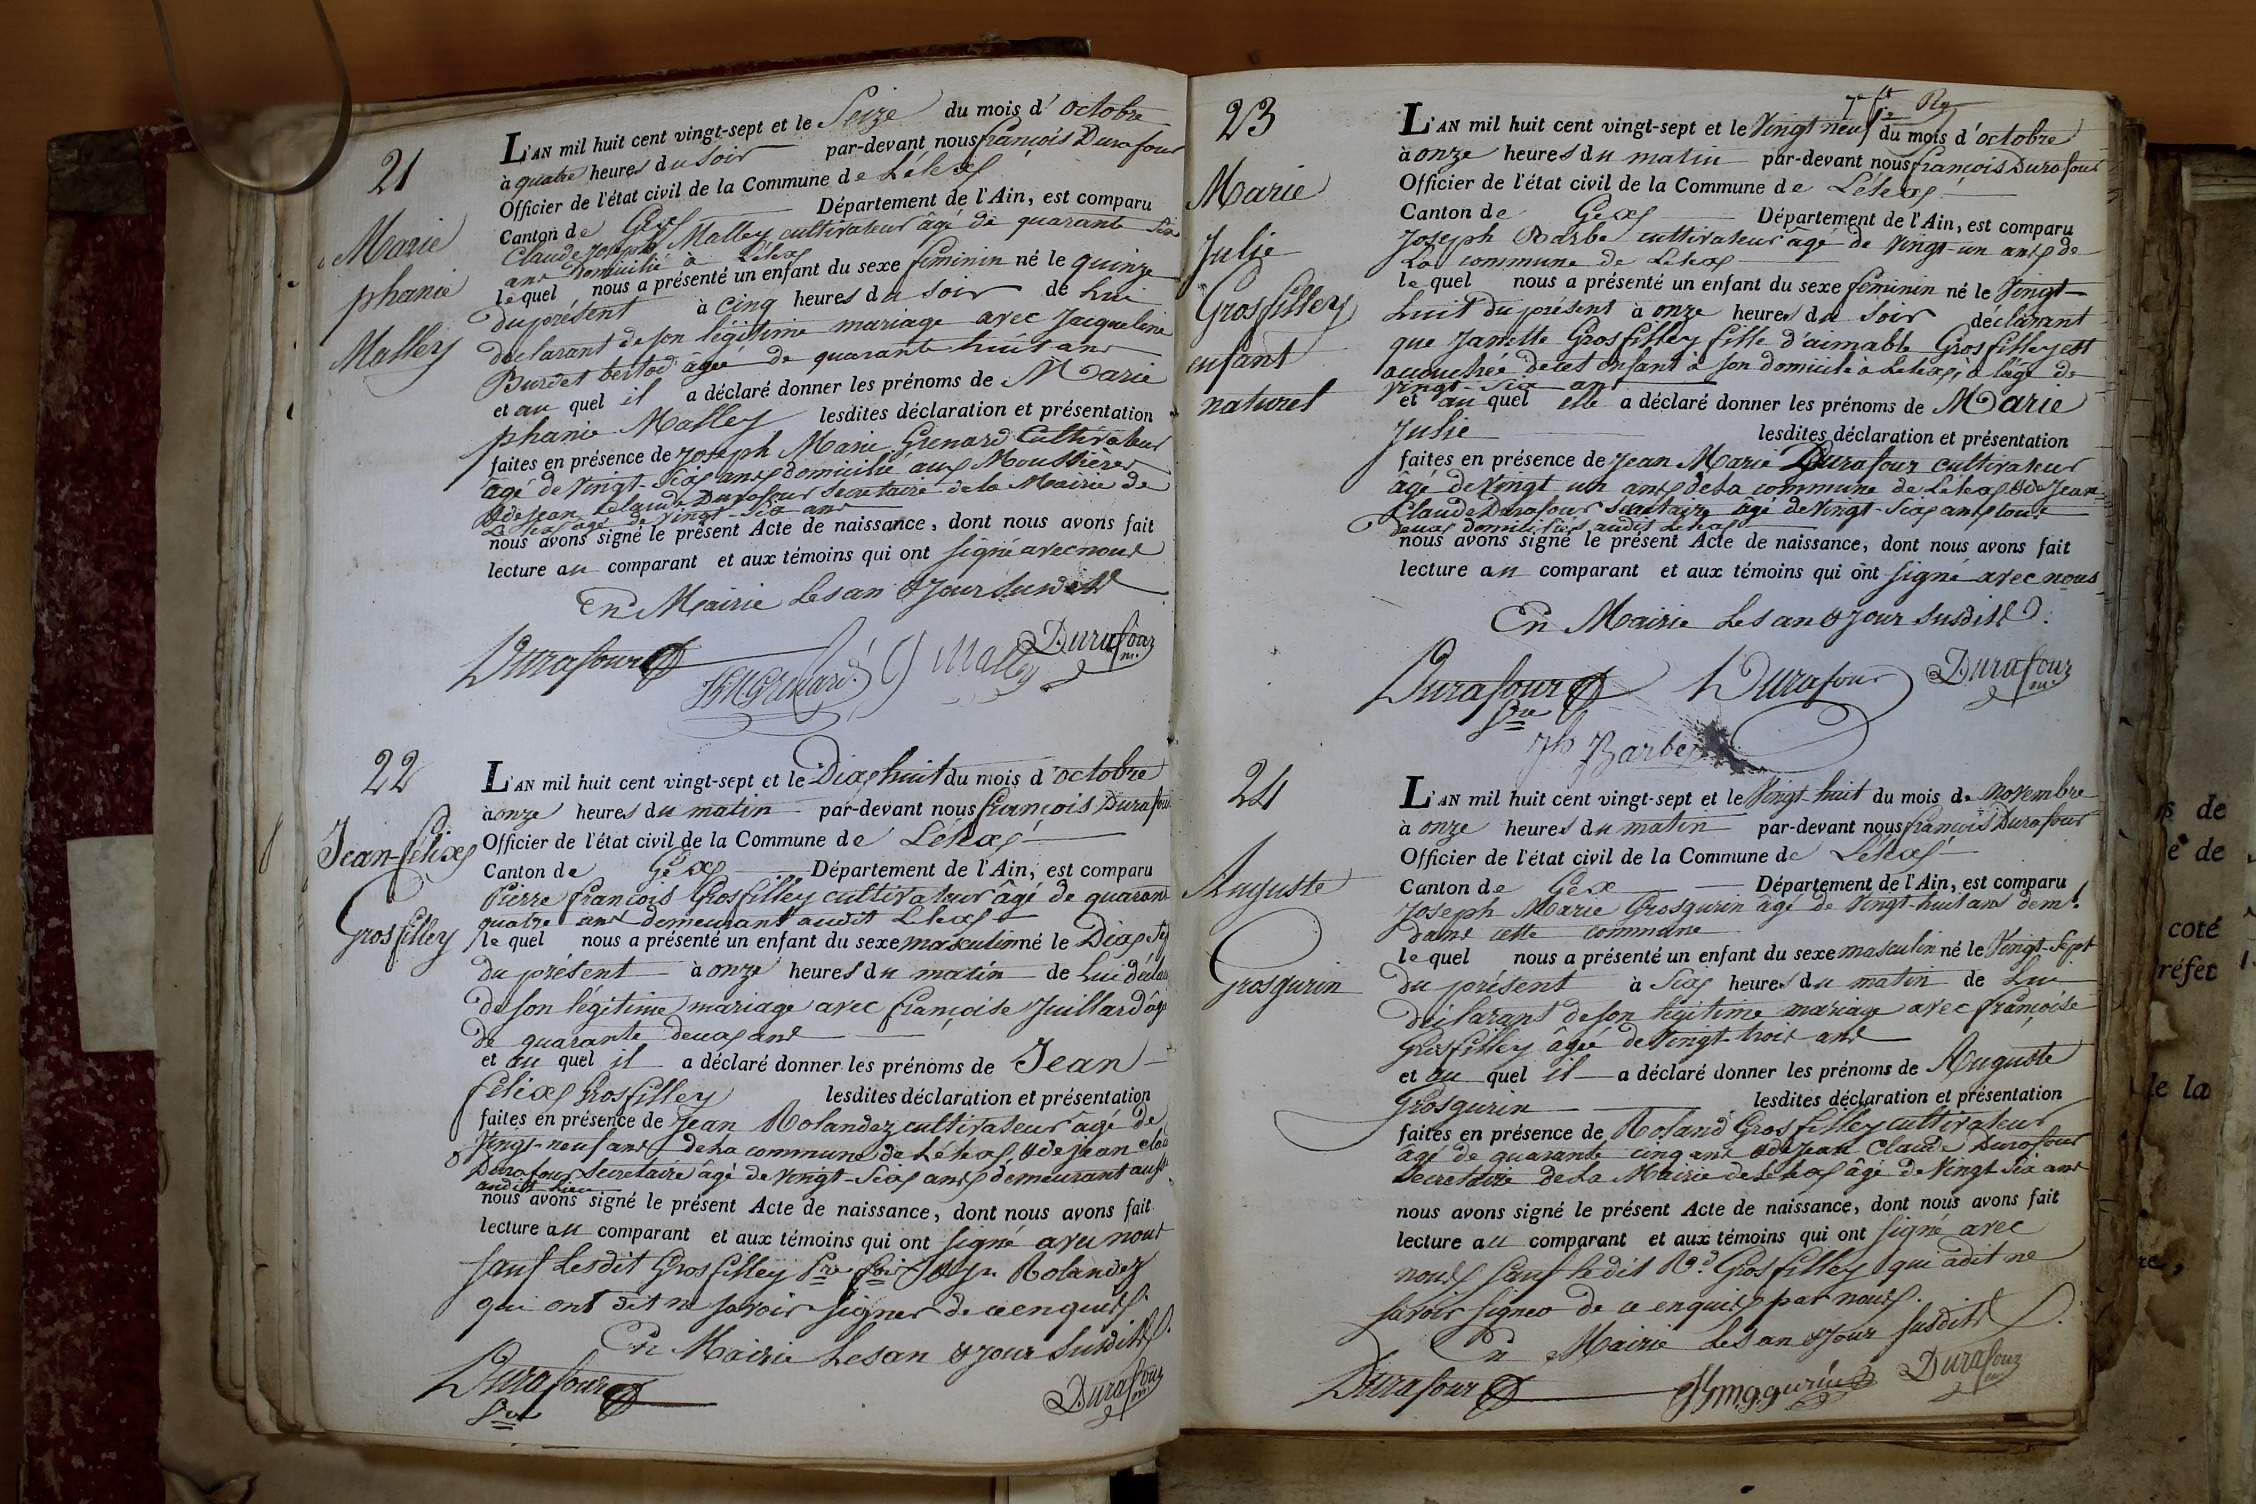 21
Marie
phanie
Malley
L'AN mil huit cent vingt-sept et le Seize du mois d'octobre
à quatre heures du soir par-devant nous françois Durafour
Officier de l'état civil de la Commune de Lélex
Canton de Gex Département de l'Ain, est comparu
Claude Joseph Malley cultivateur âgé de quarante six
ans Domicilié à Lélex
le quel nous a présenté un enfant du sexe féminin né le quinze
du présent à cinq heures du soir de lui
déclarant de son légitime mariage avec Jacqueline
Burdet âgée de quarante huit ans
et au quel il a déclaré donner les prénoms de Marie
phanie Malley lesdites déclaration et présentation
faites en présence de Joseph Marie Grenard Cultivateur
âgé de vingt-six ans domicilié aux Moussières
& de jean Claude Durafour secretaire de la Mairie de
Lélex âgé de vingt-six ans
nous avons signé le présent Acte de naissance, dont nous avons fait
lecture au comparant et aux témoins qui ont signé avec nous
En Mairie Les an & jour susdits
Durafour JhMGrenard CJ Malley Durafour m.
22
Jean-félix
Grosfilley
L'AN mil huit cent vingt-sept et le Dix huit du mois d'octobre
à onze heures du matin par-devant nous françois Durafour
Officier de l'état civil de la Commune de Lélex
Canton de Gex Département de l'Ain, est comparu
Pierre françois Grosfilley cultivateur âgé de quarante
quatre ans demeurant audit Lélex
le quel nous a présenté un enfant du sexe masculin né le Dix sept
du présent à onze heures du matin de lui déclarant
de son légitime mariage avec françoise Juillard âgée
de quarante deux ans
et au quel il a déclaré donner les prénoms de Jean
félix Grosfilley lesdites déclaration et présentation
faites en présence de Jean Rolandez cultivateur âgé de
vingt-neuf ans de la commune de Lélex & de jean Claude
Durafour secretaire âgé de vingt-six ans demeurant aussi
audit Lieu
nous avons signé le présent Acte de naissance, dont nous avons fait
lecture au comparant et aux témoins qui ont signé avec nous
sauf Lesdit Grosfilley Pre fois & Jn Rolandez
qui ont dit ne savoir signer de ce enquis.
En Mairie Les an & jour susdits.
Durafour Sre Durafour m.
23
Marie
Julie
Grosfilley
enfant
naturel
7e ft Rg
L'AN mil huit cent vingt-sept et le Vingt neuf du mois d'octobre
à onze heures du matin par-devant nous françois Durafour
Officier de l'état civil de la Commune de Lélex
Canton de Gex Département de l'Ain, est comparu
Joseph Barbe cultivateur âgé de vingt-un ans de
La commune de Lélex
le quel nous a présenté un enfant du sexe féminin né le Vingt
huit du présent à onze heures du soir déclarant
que Janette Grosfilley fille d'aimable Grosfilley est
accouchée de cet enfant à son domicile à Lélex, à l'âge de
vingt-six ans
et au quel elle a déclaré donner les prénoms de Marie
Julie lesdites déclaration et présentation
faites en présence de Jean Marie Durafour cultivateur
âgé de vingt un ans de la commune de Lélex & de Jean
Claude Durafour secretaire âgé de vingt-six ans tous
deux domiciliés audit Lélex
nous avons signé le présent Acte de naissance, dont nous avons fait
lecture au comparant et aux témoins qui ont signé avec nous
En Mairie Les an & jour susdits.
Durafour Sre Durafour Durafour m.
Jh Barbe
24
Auguste
Grosgurin
L'AN mil huit cent vingt-sept et le Vingt-huit du mois de novembre
à onze heures du matin par-devant nous françois Durafour
Officier de l'état civil de la Commune de Lélex
Canton de Gex Département de l'Ain, est comparu
Joseph Marie Grosgurin âgé de Vingt-huit ans demt
dans cette commune
le quel nous a présenté un enfant du sexe masculin né le Vingt-Sept
du présent à six heures du matin de lui
déclarant de son légitime mariage avec françoise
Grosfilley âgée de vingt-trois ans
et au quel il a déclaré donner les prénoms de Auguste
Grosgurin lesdites déclaration et présentation
faites en présence de Roland Grosfilley cultivateur
âgé de quarante cinq ans & de Jean Claude Durafour
Secretaire de la Mairie de Lélex âgé de Vingt six ans
nous avons signé le présent Acte de naissance, dont nous avons fait
lecture au comparant et aux témoins qui ont signé avec
nous sauf ledit Rd Grosfilley qui a dit ne
savoir signer de ce enquis par nous.
En Mairie Les an & jour susdits.
Durafour Durafour m.
s de
e de
coté
réfet
de la
re,